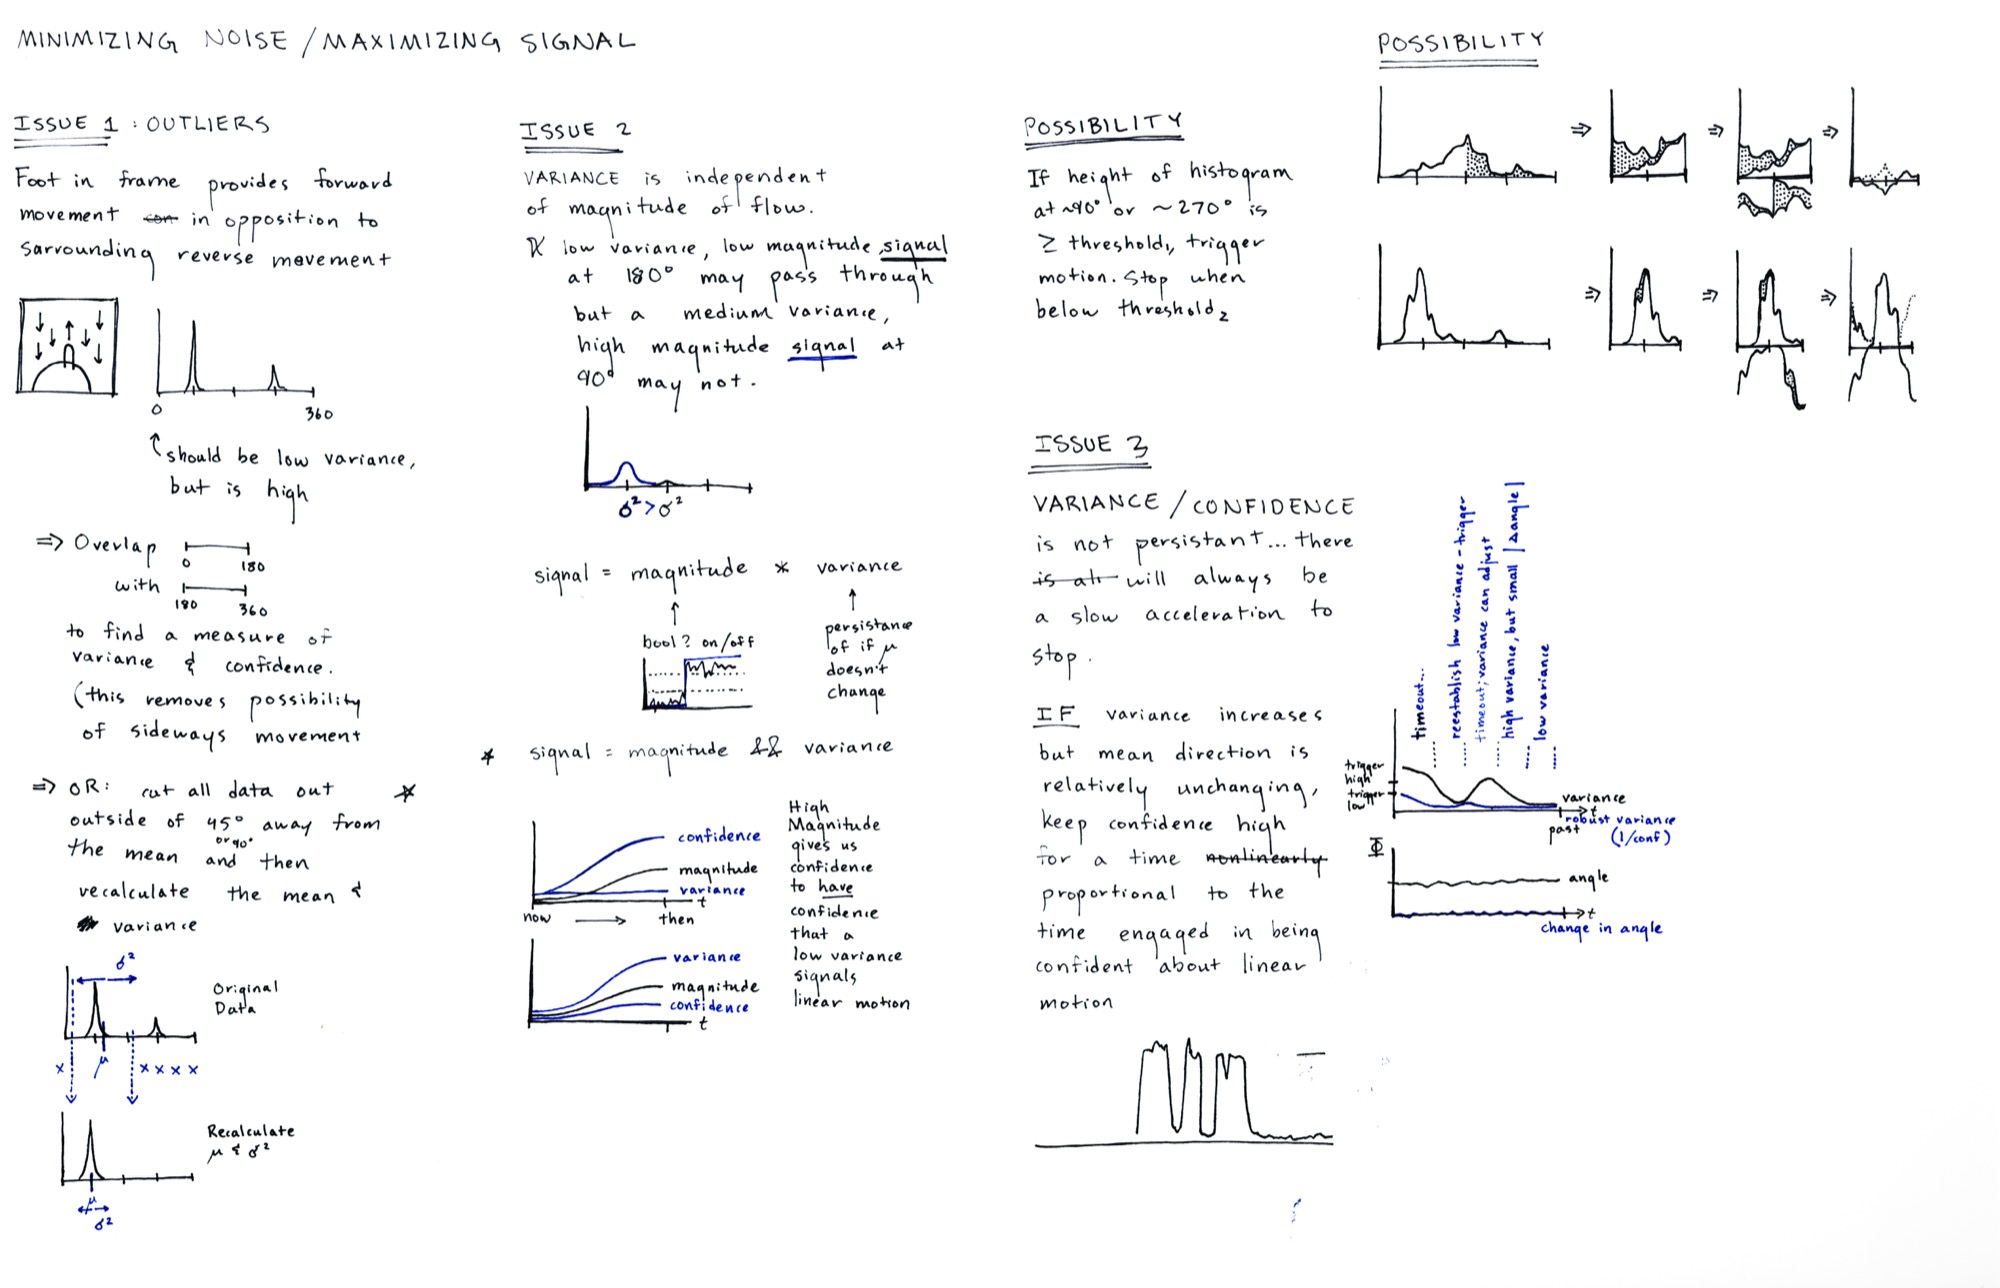 MINIMIZING NOISE / MAXIMIZING SIGNAL
ISSUE 1 : OUTLIERS
Foot in frame provides forward
movement con in opposition to
sarrounding reverse movement
0
360
should be low variance,
but is high
⇒ Overlap
0 180
with
180 360
to find a measure of
variance & confidence.
(this removes possibility
of sideways movement
⇒ OR: cut all data out *
outside of 45° away from
or 90°
the mean and then
recalculate the mean &
variance
σ²
Original
Data
μ
x x x x x
Recalculate
μ & σ²
μ
σ²
ISSUE 2
VARIANCE is independent
of magnitude of flow.
low variance, low magnitude signal
at 180° may pass through
but a medium variance,
high magnitude signal at
90° may not.
σ² > σ²
signal = magnitude * variance
bool? on/off
persistance
of if μ
doesn't
change
* signal = magnitude && variance
confidence
magnitude
variance
t
now → then
variance
magnitude
confidence
t
High
Magnitude
gives us
confidence
to have
confidence
that a
low variance
signals
linear motion
POSSIBILITY
If height of histogram
at ~90° or ~270° is
≥ threshold₁, trigger
motion. Stop when
below threshold₂
POSSIBILITY
⇒ ⇒ ⇒
⇒ ⇒ ⇒
ISSUE 3
VARIANCE / CONFIDENCE
is not persistant... there
is alr will always be
a slow acceleration to
stop.
IF variance increases
but mean direction is
relatively unchanging,
keep confidence high
for a time nonlinearly
proportional to the
time engaged in being
confident about linear
motion
timeout...
reestablish low variance - trigger
timeout; variance can adjust
high variance, but small |Δangle|
low variance
trigger
high
trigger
low
variance
t
past
robust variance
(1/conf)
Φ
angle
t
change in angle